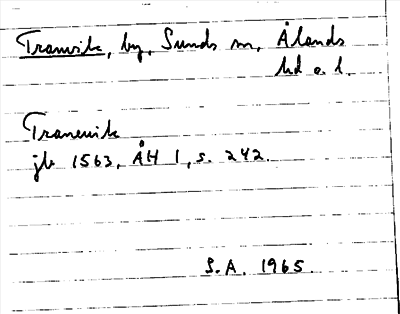 Tranvik, by, Sunds sn, Ålands
hd o. l.
Tranevik
jb 1563, ÅH 1, s. 242.
S.A. 1965.